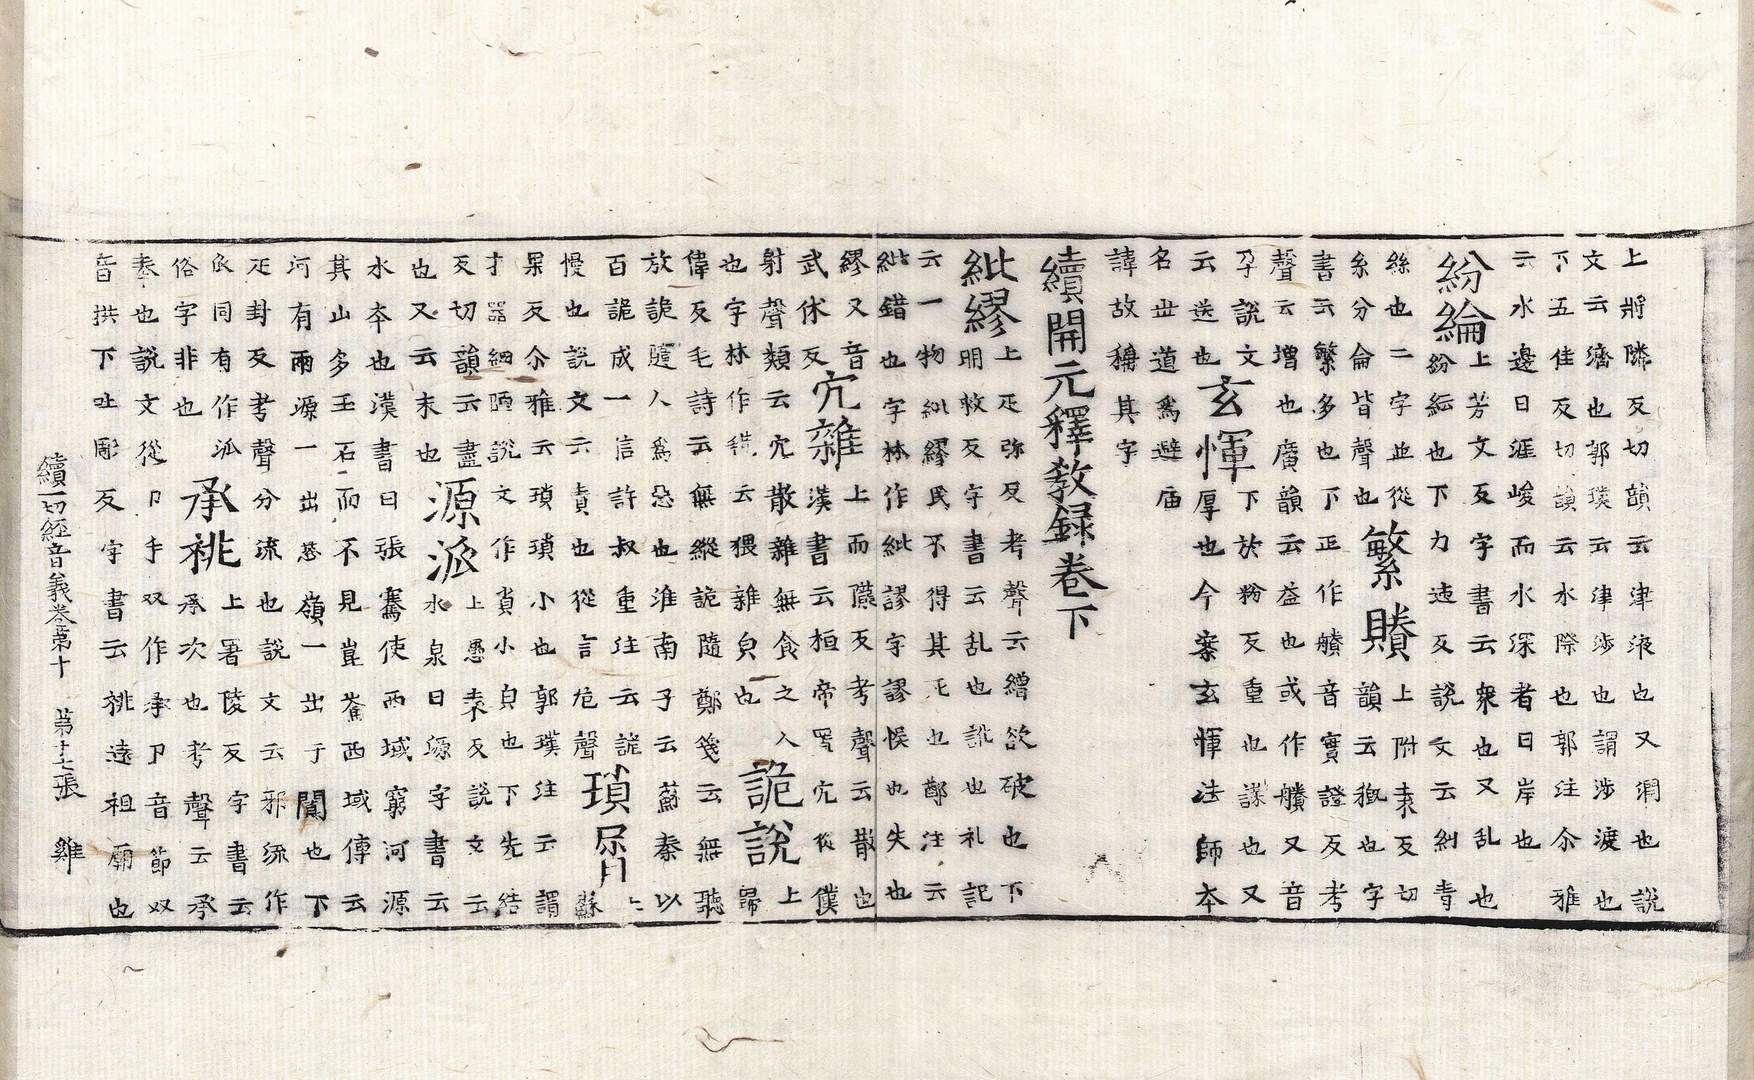 上將隣反切韻云津液也又潤也説
文云濟也郭璞云津渉也謂渉渡也
下五佳反切韻云水際也郭注尒雅
云水邊曰涯峻而水深者曰岸也
紛綸上芳文反字書云衆也又乱也
紛紜也下力迍反説文云糾青
絲也二字並從糸分侖皆聲也
繁賸上附袁反切韻云概也字
書云繁多也下正作賸音實證反考
聲云增也廣韻云益也或作賸又音
孕説文云送也
玄惲下於粉反重也謀也又
厚也今案玄惲法師本
名世道爲避庙
諱故稱其字
續開元釋教録卷下
紕繆上疋弥反考聲云繒欲破也下
明救反字書云乱也訛也礼記
云一物紕繆民不得其死也鄭注云
紕錯也字林作紕謬字謬悮也失也
繆又音武休反
宂雜上而隴反考聲云散也
漢書云桓帝宂從僕
射聲類云宂散雜無食之人
也字林作云猥雜皃也
詭説上歸
偉反毛詩云無縱詭隨鄭箋云無聽
放詭隨人爲惡也淮南子云蘇秦以
百詭成一信許叔重注云詭
慢也説文云責也從言危聲
瑣屑上蘇
果反尒雅云瑣瑣小也郭璞注云謂
才器細陋説文作貨小皃也下先結
反切韻云盡也又云末也
源派上愚袁反説文云
水泉曰源字書云
水夲也漢書曰張騫使西域窮河源
其山多玉石而不見崑崙西域傳云
河有兩源一出葱嶺一出于闐也下
疋封反考聲分流也説文云邪流作
𠂢同有作泒俗字非也
承祧上署陵反字書云
承次也考聲云承
奉也説文從卪手双作承卪音節双
音拱下吐彫反字書云祧遠祖廟也
續一切經音義卷第十 第十七張 雞